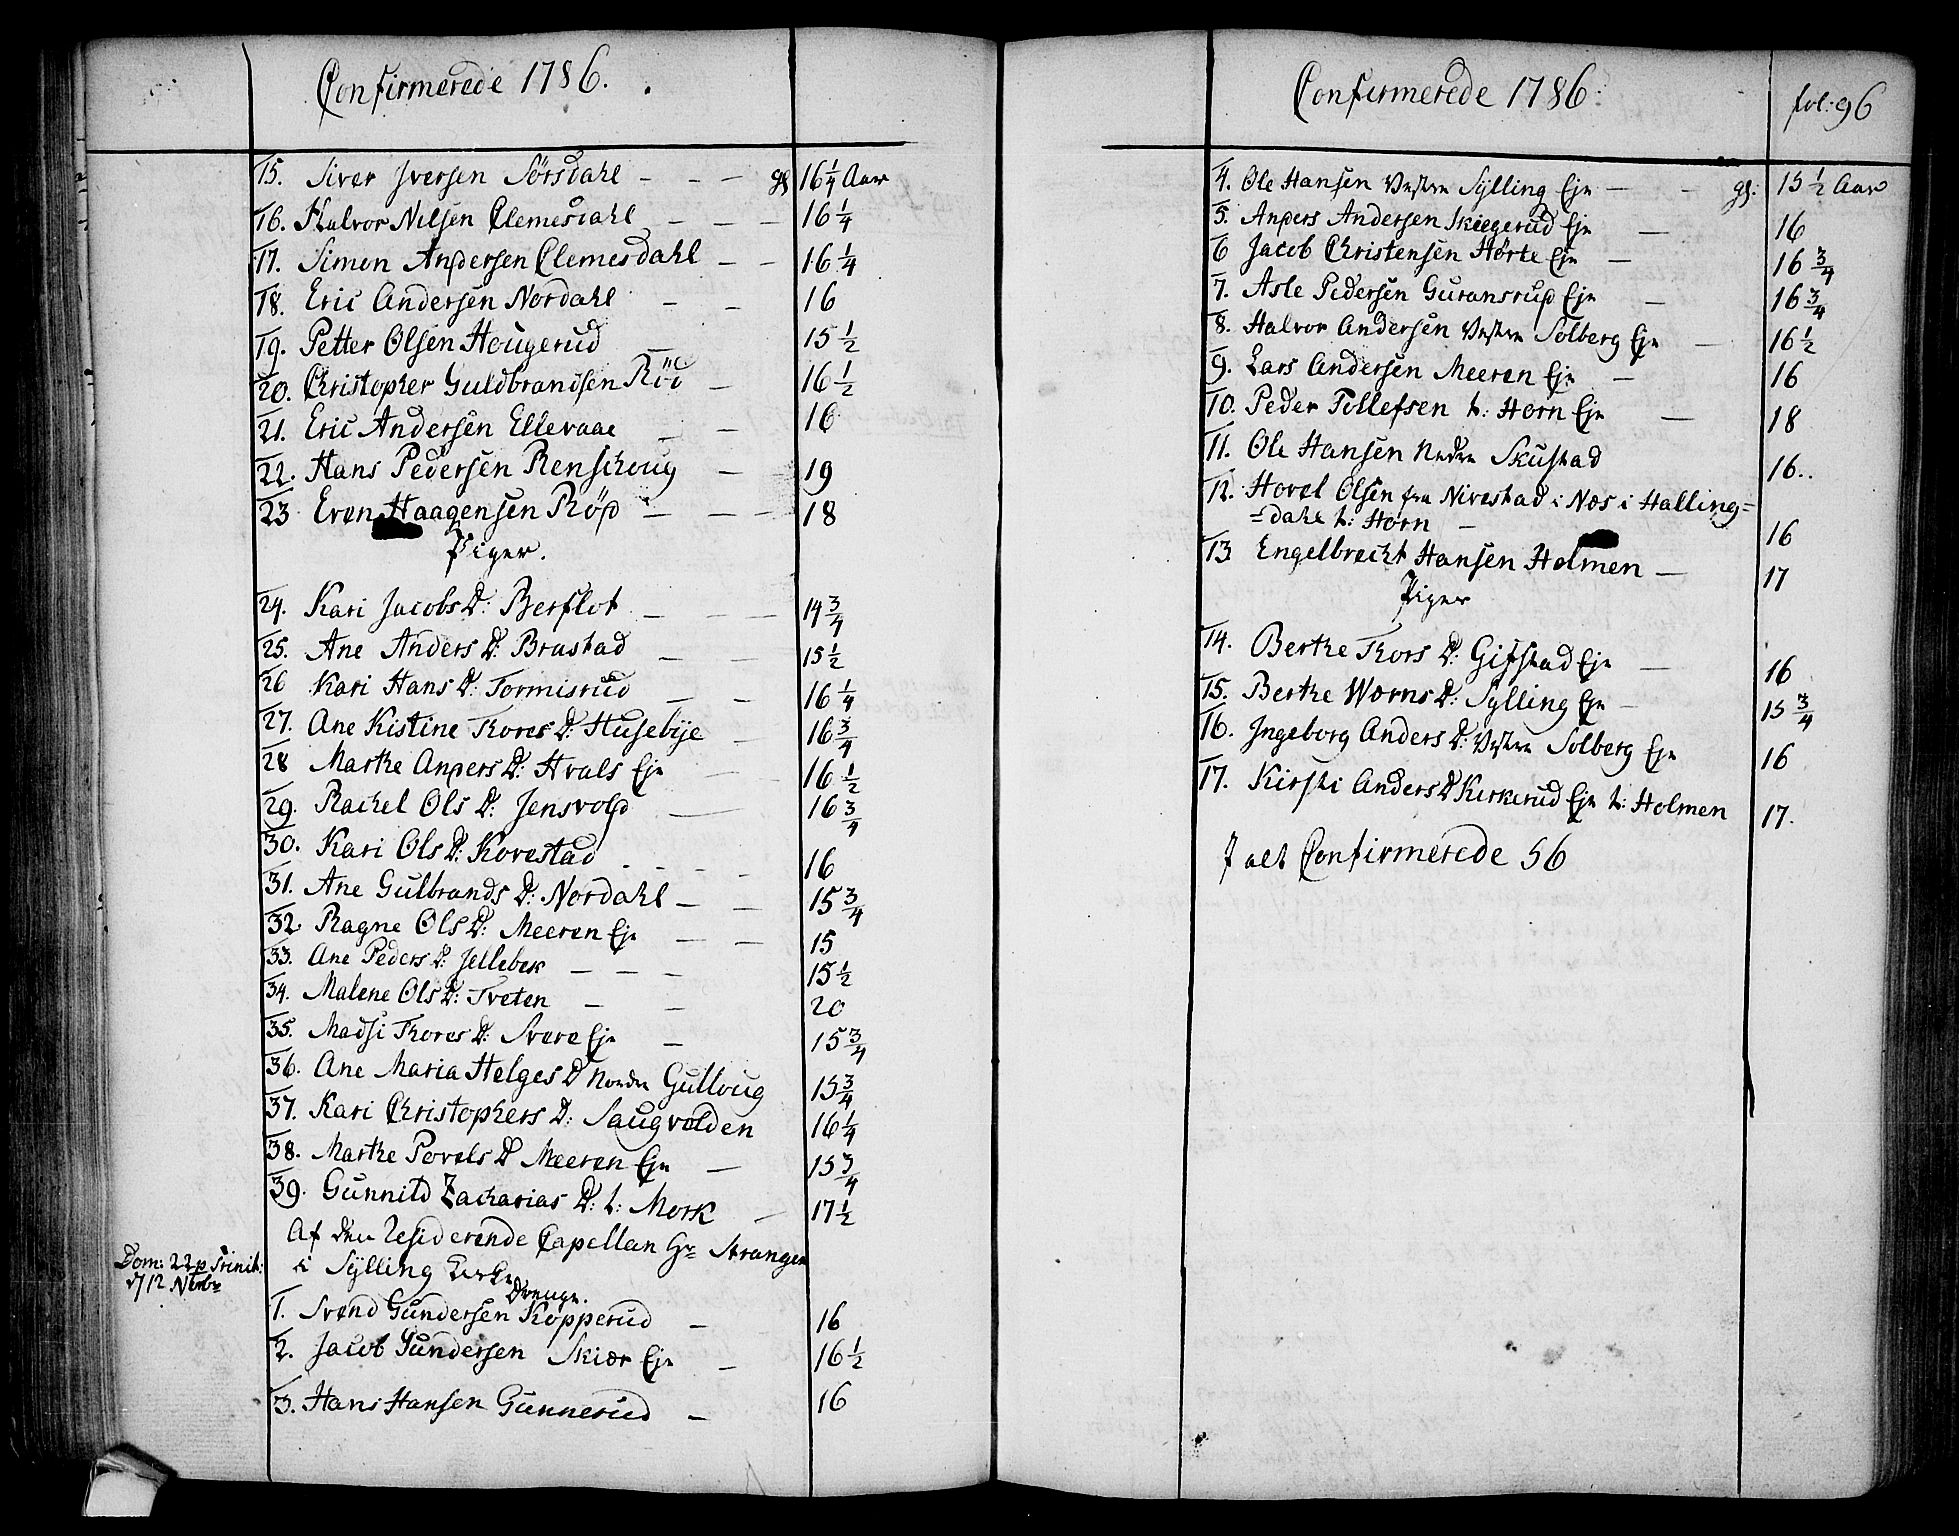 Confirmerede 1786.
15. Siver Iversen Sörsdahl - - - gl 16 1/4 Aar
16. Halvor Nilsen Clemesdahl - - - 16 1/4
17. Simon Andersen Clemesdahl - - 16 1/4
18. Eric Andersen Nordahl - - 16
19. Petter Olsen Hougerud 15 1/2
20. Christopher Guldbrandsen Röd - 16 1/2
21. Eric Andersen Ellevaae - - 16
22. Hans Pedersen Renskoug - 19
23 Even Haagensen Röd - - - 18
Piger.
24. Kari Jacobs D: Berflot - - - 14 3/4
25. Ane Anders D: Brastad - - 15 1/2
26 Kari Hans D: Tormisrud - - 16 1/4
27. Ane Kistine Thores D: Husebye - 16 3/4
28 Marthe Anders D: Hvals Eje - - 16 1/2
29. Rachel Ols D: Jensvold - 16 3/4
30. Kari Ols D: Kovestad - - - - 16
31. Ane Gulbrands D: Nordahl - - 15 3/4
32. Ragne Ols D: Meeren Eje - - 15
33. Ane Peders D: Jellebek - - - 15 1/2
34. Malene Ols D: Tveten - - 20
35. Madsi Thores D: Svere Eje - 15 3/4
36. Ane Maria Helges D Nordre Gulloug 15 3/4
37. Kari Christophers D: Saugvolden 16 1/4
38. Marthe Povels D Meeren Eje - 15 3/4
39. Gunnild Zacharias D: t: Mork - 17 1/2
Af den residerende Capellan Hr Strangen
Dom: 22 p Trinit: i Sylling Kirke
d 12 Novbr
Drenge.
1. Svend Gundersen Kopperud - 16
2. Jacob Gundersen Skiær Eje - 16 1/2
3. Hans Hansen Gunnerud - 16
Confirmerede 1786. fol: 96
4. Ole Hansen Vestre Sylling Eje - - gl: 15 1/2 Aar
5. Anders Andersen Skiegerud Eje - 16
6 Jacob Christensen Hörte Eje - 16 3/4
7. Asle Pedersen Guransrud Eje - 16 3/4
8. Halvor Andersen Vestre Solberg Eje - 16 1/2
9. Lars Andersen Meeren Eje - 16
10. Peder Tollefsen t: Horn Eje - 18
11. Ole Hansen Nedre Skustad 16..
12. Hovel Olsen fra Nivestad i Næs i Halling=
=dahl t: Horn - 16
13 Engelbrecht Hansen Holmen - 17
Piger
14. Berthe Thors D: Gifstad Eje - 16
15. Berthe Worns D: Sylling Eje - 15 3/4
16. Ingeborg Anders D: Vestre Solberg Eje 16
17. Kirsti Anders D Kerkerud Eje t: Holmen 17.
I alt Confirmerede 56